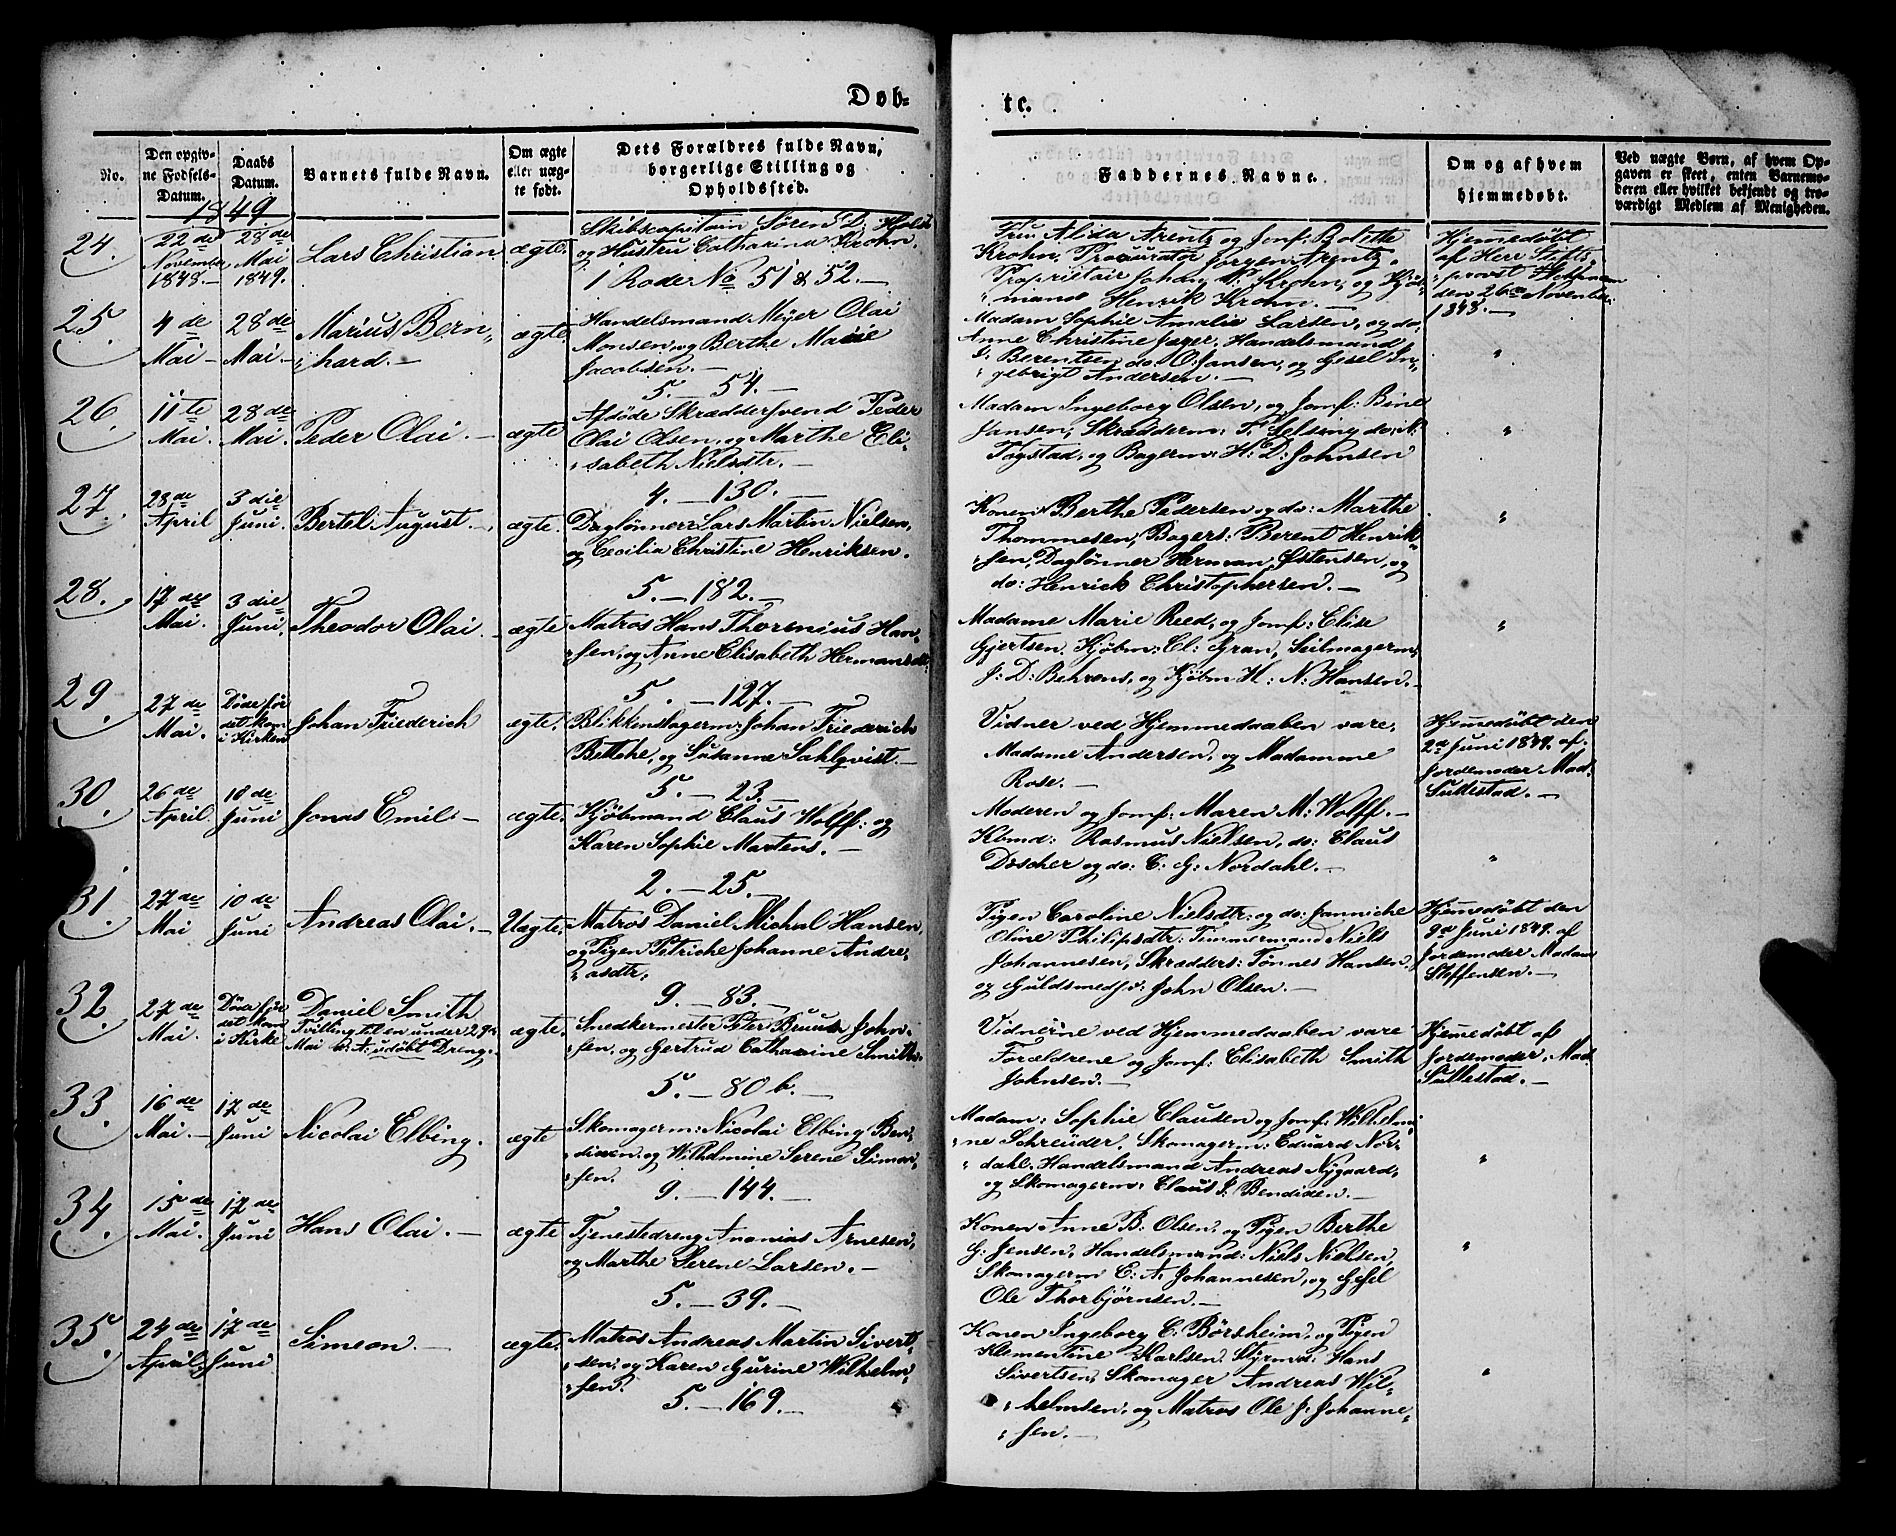 Døb-
te.
No.
Den opgiv-
ne Fødsels-
Datum.
Daabs
Datum.
Barnets fulde Navn.
Om ægte
eller uæg-
te født.
Dets Forældres fulde Navn,
borgerlige Stilling og
Opholdssted.
Faddernes Navne.
Om og af hvem
hjemmedøbt.
Ved uægte Børn, af hvem Op-
gaven er skeet, enten Barnemo-
deren eller hvilket bekjendt og tro-
værdigt Medlem af Menigheden.
1849
24.
22de
November
1848.
28de
Mai
1849.
Lars Christian
ægte.
Skibskapitain Søren D. Holst
og Hustru Catharina Krohn.
1 Rode No 51 & 52.
Fru Alida Arentz og Jomf: Bolette
Krohn, Procurator Jørgen Arentz,
Proprietair Johan Krohn, og Kjøb-
mand Henrik Krohn.
Hjemmedøbt
af Herr Stifts-
provst
den 26de November
1848.
25.
4de
Mai
28de
Mai
Marius Bern-
hard.
ægte
Handelsmand Meyer Olai
Monsen, og Berthe Marie
Jacobsen.
5. — 54.
Madam Sophie Amalie Larsen, og do.
Anne Christine Jæger, Handelsmand
Berentsen do: O. Jansen, og Gesel In-
gebrigt Andersen.
"
26.
11te
Mai.
28de
Mai.
Peder Olai.
ægte
Afdøde Skræddersvend Peder
Olai Olsen, og Marthe Eli-
sabeth Nielsdtr.
4. — 130.
Madam Ingeborg Olsen, og Jomf: Bine
Jansen, Skrædderm: do: N:
Togstad, og Bagerm: H: D: Johnsen
"
27.
28de
April
3die
Juni.
Bertel August.
ægte.
Daglønner Lars Martin Nielsen,
og Cecilia Christine Henriksen.
5. — 182.
Konen Berthe Pedersen og do: Marthe
Thommesen, Bagers: Berent Henrik-
sen, Daglønner Herman Østensen, og
do: Henrick Christophersen.
"
28.
17de
Mai.
3die
Juni.
Theodor Olai.
ægte
Matros Hans Thorenius Han-
sen, og Anne Elisabeth Hermansdtr.
5. — 127.
Madame Marie Reed, og Jomf: Elise
Gjertsen, Kjøbm: Cl: Gran, Seilmagerm:
J: D: Behrens, og Kjøbm H: N: Hansen.
"
29.
27de
Mai.
Døde før
det kom
i Kirken
Johan Friederich
ægte.
Blikkenslagerm: Johan Friederich
Bøttche, og Susanne Sahlqvist.
5. — 23.
Vidner ved Hjemmedaaben vare,
Madame Andersen, og Madamme
Rose.
Hjemmedøbt den
2den Juni 1849. af
Jordemoder Mad:
Sullestad.
30.
26de
April
10de
Juni
Jonas Emil
ægte.
Kjøbmand Claus Wolff: og
Karen Sophie Martens.
2. — 25.
Moderen og Jomf: Maren M: Wolff.
Kbmd: Rasmus Nielsen, do: Claus
Döscher og do: C: G: Nordahl.
"
31.
27de
Mai
10de
Juni
Andreas Olai.
Uægte.
Matros Daniel Michal Hansen,
og Pigen Petriche Johanne Andre-
asdtr.
9. — 83.
Pigen Caroline Nielsdtr: og do: Janniche
Oline Philipsdtr: Timmermand Niels
Johannesen, Skrædders: Tønnes Hansen,
og Guldsmedsv: John Olsen.
Hjemmedøbt den
9de Juni 1849. af
Jordemoder Madam
Steffensen.
32.
27de
Mai.
Døde før
det kom
i Kirke
Daniel Smith
Tvilling til en under 29de
Mai d: A: udøbt Dreng.
ægte.
Snedkermester Peter Bruus John-
sen, og Gertrud Catharine Smith.
5. — 80 b.
Vidnerne ved Hjemmedaaben vare
Forældrene og Jomf: Elisabeth Smith
Johnsen.
Hjemmedøbt af
Jordemoder, Mad:
Sullestad.
33.
16de
Mai.
17de
Juni
Nicolai Elbing.
ægte
Skomagerm: Nicolai Elbing Ben-
dixen, og Wilhelmine Serene Simon-
sen.
9. — 144.
Madam: Sophie Clausen og Jomf: Wilhelmi-
ne Schreuder, Skomagerm: Eduard Nor-
dahl, Handelsmand Andreas Nygaard,
og Skomagerm: Claus J. Bendixen.
"
34.
15de
Mai.
17de
Juni
Hans Olai.
ægte
Tjenestedreng Ananias Arnesen,
og Marthe Serene Larsen.
5. — 39.
Konen Anne B: Olsen, og Pigen Berthe
G: Jensen, Handelsmand: Niels Nielsen,
Skomagerm C: A: Johannesen, og Gesel
Ole Thorbjørnsen.
"
35.
24de
April
17de
Juni
Simeon.
ægte.
Matros Andreas Martin Sivert-
sen, og Karen Gurine Wilhelm-
sen.
5. — 169.
Konen Ingeborg C: Børsheim, og Pigen
Klementine Karlsen, Styrm: Hans
Sivertsen, Skomager Andreas Wil-
helmsen, og Matros Ole J: Johanne-
sen.
"